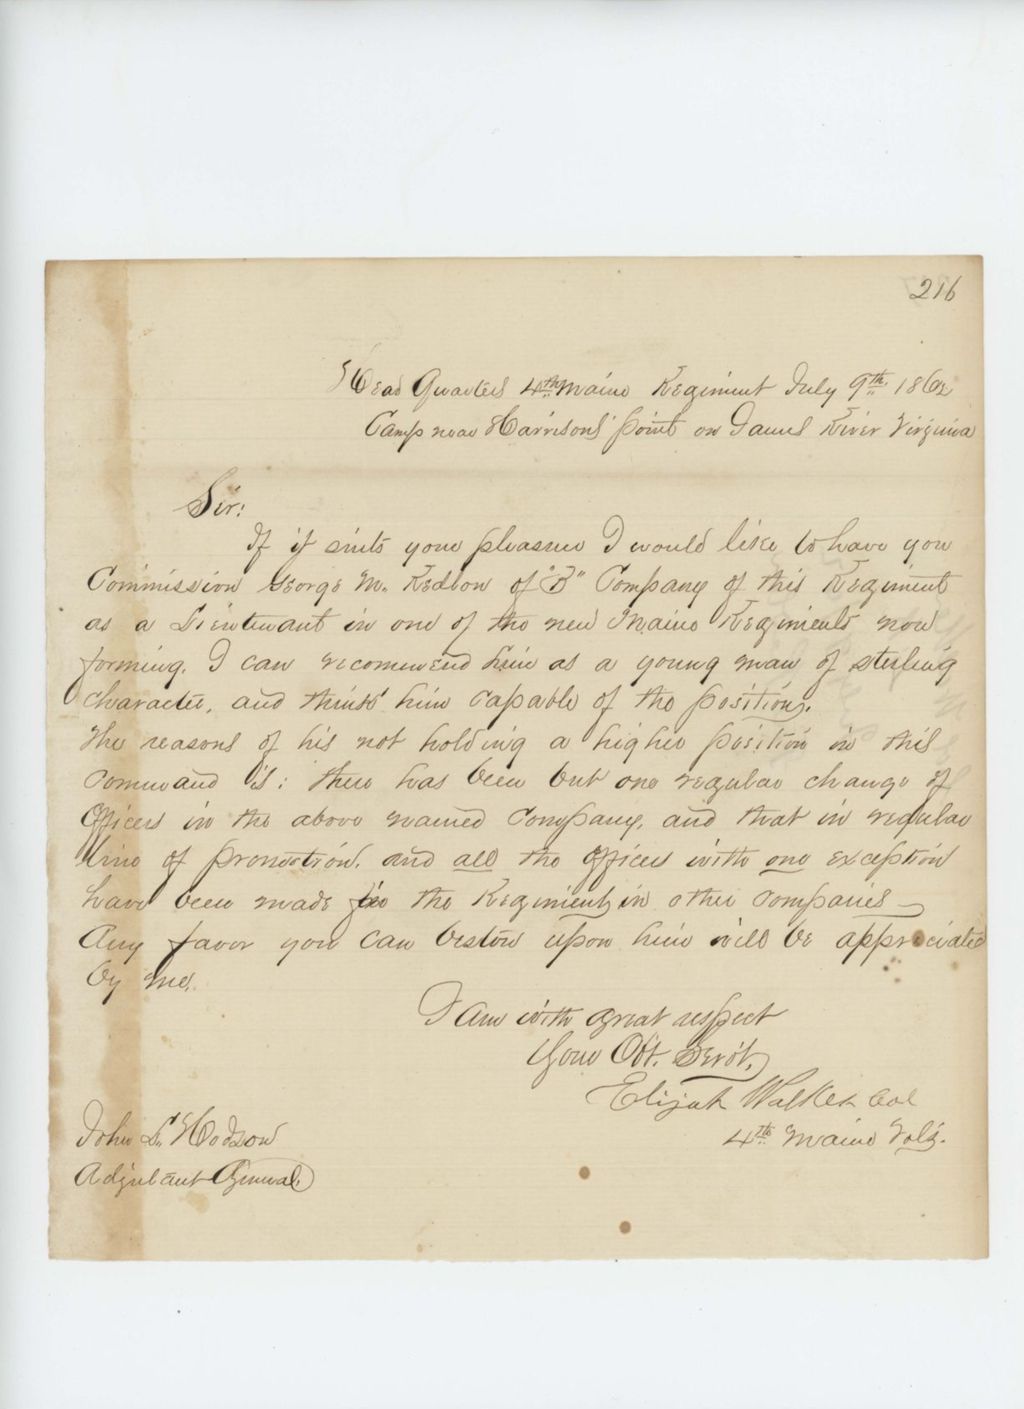 216
Head Quarters 4th Maine Regiment July 9th 1862
Camp near Harrisons' point on James River Virginia
Sir:
If it suits your pleasure I would like to have you
Commission George M. Redlon of "B" Company of this Regiment
as a Lieutenant in one of the new Maine Regiments now
forming. I can recommend him as a young man of sterling
character, and think him capable of the position.
The reasons of his not holding a higher position in this
command is: there has been but one regular change of
Officers in the above named company, and that in regular
line of promotion, and all the officers with one exception
have been made the Regiment in other companies
Any favor you can bestow upon him will be appreciated
by me.
I am with great respect
Your Obt. Servt.
Elijah Walker Col
4th Maine Vols.
John L. Hodsdon
Adjutant General